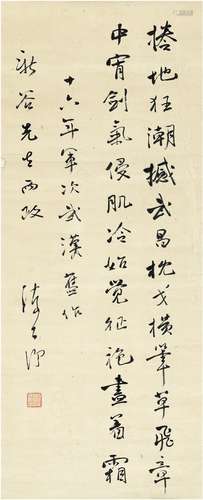 捲地狂潮撼武昌枕戈橫筆草飛章
中宵劍氣侵肌冷始覺征袍盡著霜
十六年軍次武漢舊作
新谷先生两政